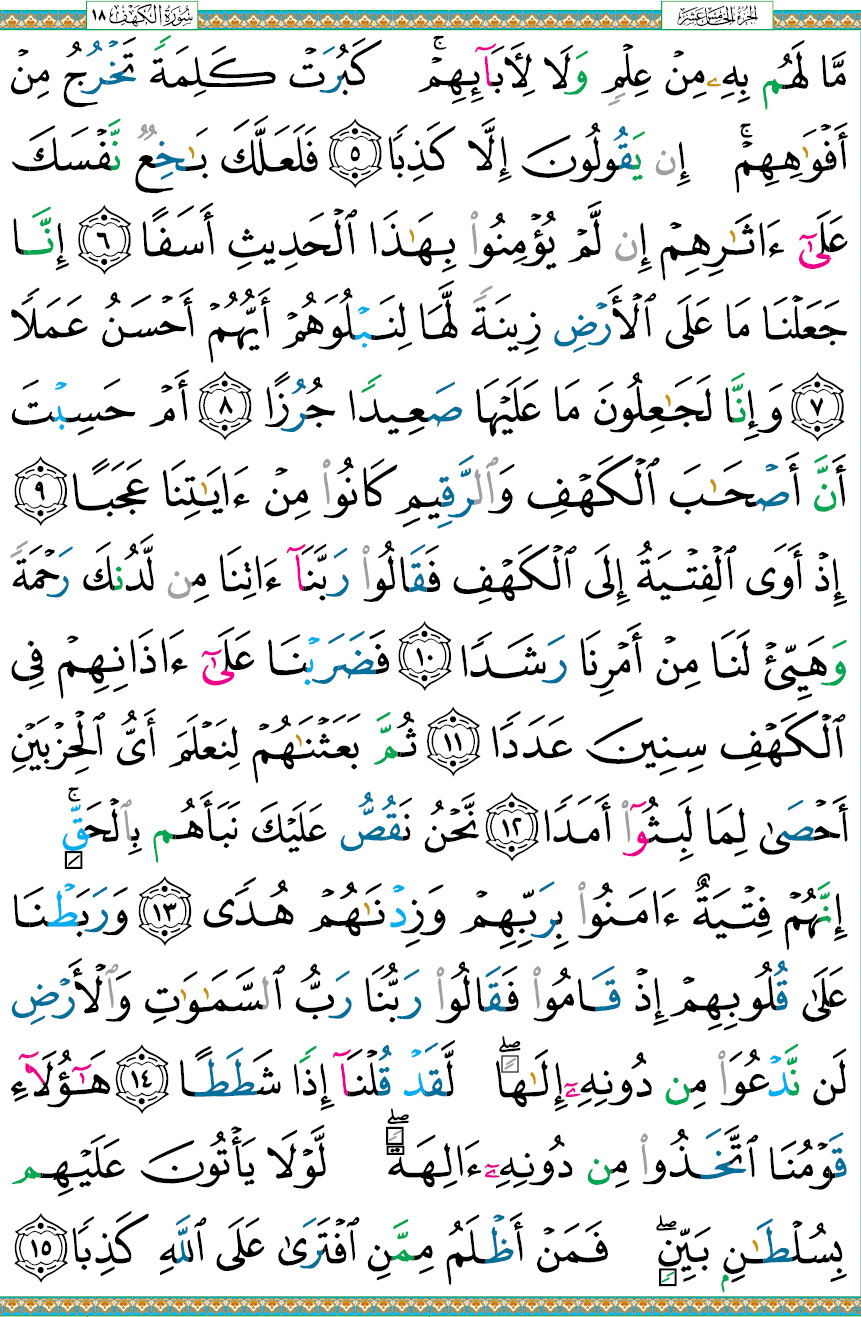 الجزء الخامس عشر
سورة الكهف ١٨
مَّا لَهُم بِهِۦ مِنۡ عِلۡمٖ وَلَا لِأٓبَآئِهِمۡۚ كَبُرَتۡ كَلِمَةٗ تَخۡرُجُ مِنۡ
أَفۡوَٰهِهِمۡۚ إِن يَقُولُونَ إِلَّا كَذِبٗا ٥ فَلَعَلَّكَ بَٰخِعٞ نَّفۡسَكَ
عَلَىٰٓ ءَاثَٰرِهِمۡ إِن لَّمۡ يُؤۡمِنُواْ بِهَٰذَا ٱلۡحَدِيثِ أَسَفًا ٦ إِنَّا
جَعَلۡنَا مَا عَلَى ٱلۡأَرۡضِ زِينَةٗ لَّهَا لِنَبۡلُوَهُمۡ أَيُّهُمۡ أَحۡسَنُ عَمَلٗا
٧ وَإِنَّا لَجَٰعِلُونَ مَا عَلَيۡهَا صَعِيدٗا جُرُزًا ٨ أَمۡ حَسِبۡتَ
أَنَّ أَصۡحَٰبَ ٱلۡكَهۡفِ وَٱلرَّقِيمِ كَانُواْ مِنۡ ءَايَٰتِنَا عَجَبًا ٩
إِذۡ أَوَى ٱلۡفِتۡيَةُ إِلَى ٱلۡكَهۡفِ فَقَالُواْ رَبَّنَآ ءَاتِنَا مِن لَّدُنكَ رَحۡمَةٗ
وَهَيِّئۡ لَنَا مِنۡ أَمۡرِنَا رَشَدٗا ١٠ فَضَرَبۡنَا عَلَىٰٓ ءَاذَانِهِمۡ فِي
ٱلۡكَهۡفِ سِنِينَ عَدَدٗا ١١ ثُمَّ بَعَثۡنَٰهُمۡ لِنَعۡلَمَ أَيُّ ٱلۡحِزۡبَيۡنِ
أَحۡصَىٰ لِمَا لَبِثُوٓاْ أَمَدٗا ١٢ نَّحۡنُ نَقُصُّ عَلَيۡكَ نَبَأَهُم بِٱلۡحَقِّۚ
إِنَّهُمۡ فِتۡيَةٌ ءَامَنُواْ بِرَبِّهِمۡ وَزِدۡنَٰهُمۡ هُدٗى ١٣ وَرَبَطۡنَا
عَلَىٰ قُلُوبِهِمۡ إِذۡ قَامُواْ فَقَالُواْ رَبُّنَا رَبُّ ٱلسَّمَٰوَٰتِ وَٱلۡأَرۡضِ
لَن نَّدۡعُوَاْ مِن دُونِهِۦٓ إِلَٰهٗاۖ لَّقَدۡ قُلۡنَآ إِذٗا شَطَطًا ١٤ هَٰٓؤُلَآءِ
قَوۡمُنَا ٱتَّخَذُواْ مِن دُونِهِۦٓ ءَالِهَةٗۖ لَّوۡلَا يَأۡتُونَ عَلَيۡهِم
بِسُلۡطَٰنِۭ بَيِّنٖۖ فَمَنۡ أَظۡلَمُ مِمَّنِ ٱفۡتَرَىٰ عَلَى ٱللَّهِ كَذِبٗا ١٥